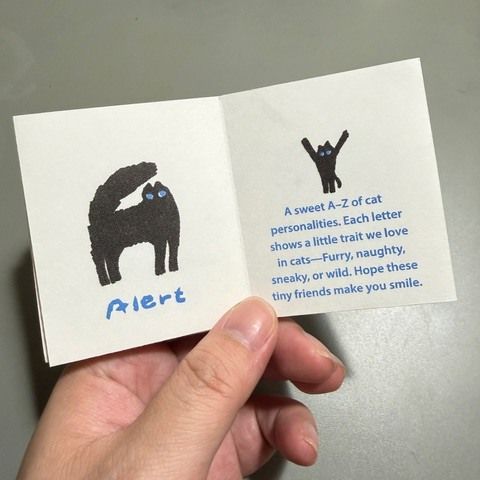 Alert
A sweet A–Z of cat
personalities. Each letter
shows a little trait we love
in cats—Furry, naughty,
sneaky, or wild. Hope these
tiny friends make you smile.